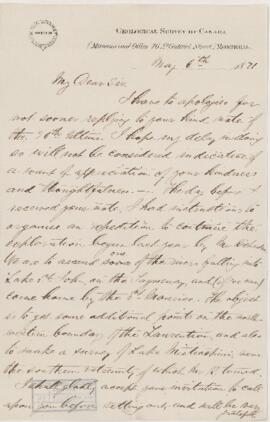 GEOLOGICAL SURVEY OF CANADA
Museum and Office 76 St Gabriel Street, MONTREAL.
May 6th 1871
My Dear Sir
I have to apologise for
not sooner replying to your kind note of
the 26th ultimo. I hope my delay in doing
so will not be considered indicative of
a want of appreciation of your kindness
and thoughtfulness. The day before I
received your note, I had instructions to
organise an expedition to continue the
exploration begun last year by Mr
We are to ascend some one of the rivers
Lake St John, on the Saguenay, and (if we can)
come home by the St Maurice. The object
is to get some additional points on the north
western boundary of the Laurentian, and also
to make a survey of Lake Mistassini, near
the southern extremity of which Mr R. turned.
I shall gladly accept your invitation to call
upon you before setting out, and will be very
grateful